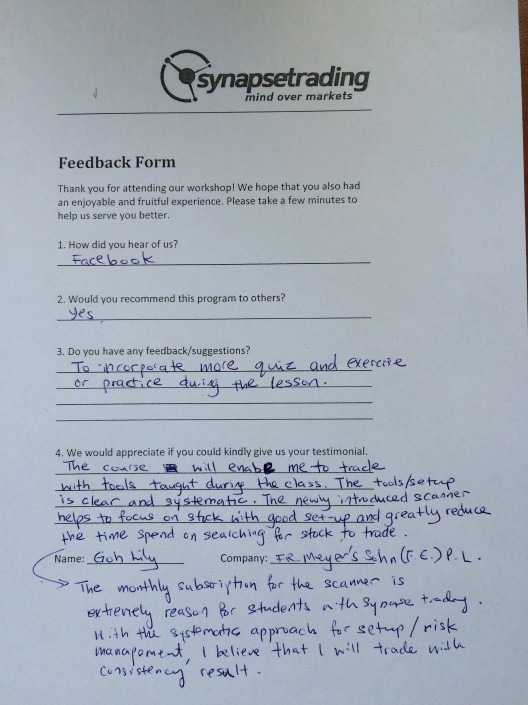 synapsetrading
mind over markets
Feedback Form
Thank you for attending our workshop! We hope that you also had
an enjoyable and fruitful experience. Please take a few minutes to
help us serve you better.
1. How did you hear of us?
Facebook
2. Would you recommend this program to others?
Yes
3. Do you have any feedback/suggestions?
To incorporate more quiz and exercise
or practice during the lesson.
4. We would appreciate if you could kindly give us your testimonial.
The course will enable me to trade
with tools taught during the class. The tools/setup
is clear and systematic. The newly introduced scanner
helps to focus on stock with good set-up and greatly reduce
the time spend on searching for stock to trade.
Name: Goh Lily Company: F.R. Meyer's Sohn (F.E.) P.L.
The monthly subscription for the scanner is
extremely reason for students with Synapse trading.
With the systematic approach for setup/risk
management, I believe that I will trade with
consistency result.